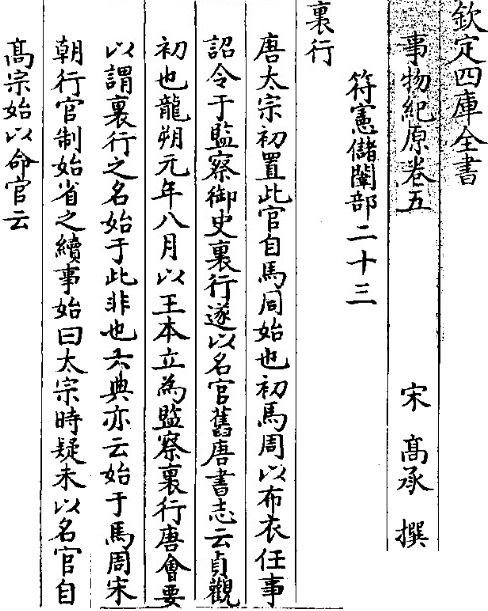 欽定四庫全書
事物紀原卷五
宋 髙承 撰
符憲儲闈部二十三
裏行
唐太宗初置此官自馬周始也初馬周以布衣任事
詔令于監察御史裏行遂以名官舊唐書志云貞觀
初也龍朔元年八月以王本立為監察裏行唐會要
以謂裏行之名始于此非也六典亦云始于馬周宋
朝行官制始省之續事始曰太宗時疑未以名官自
髙宗始以命官云